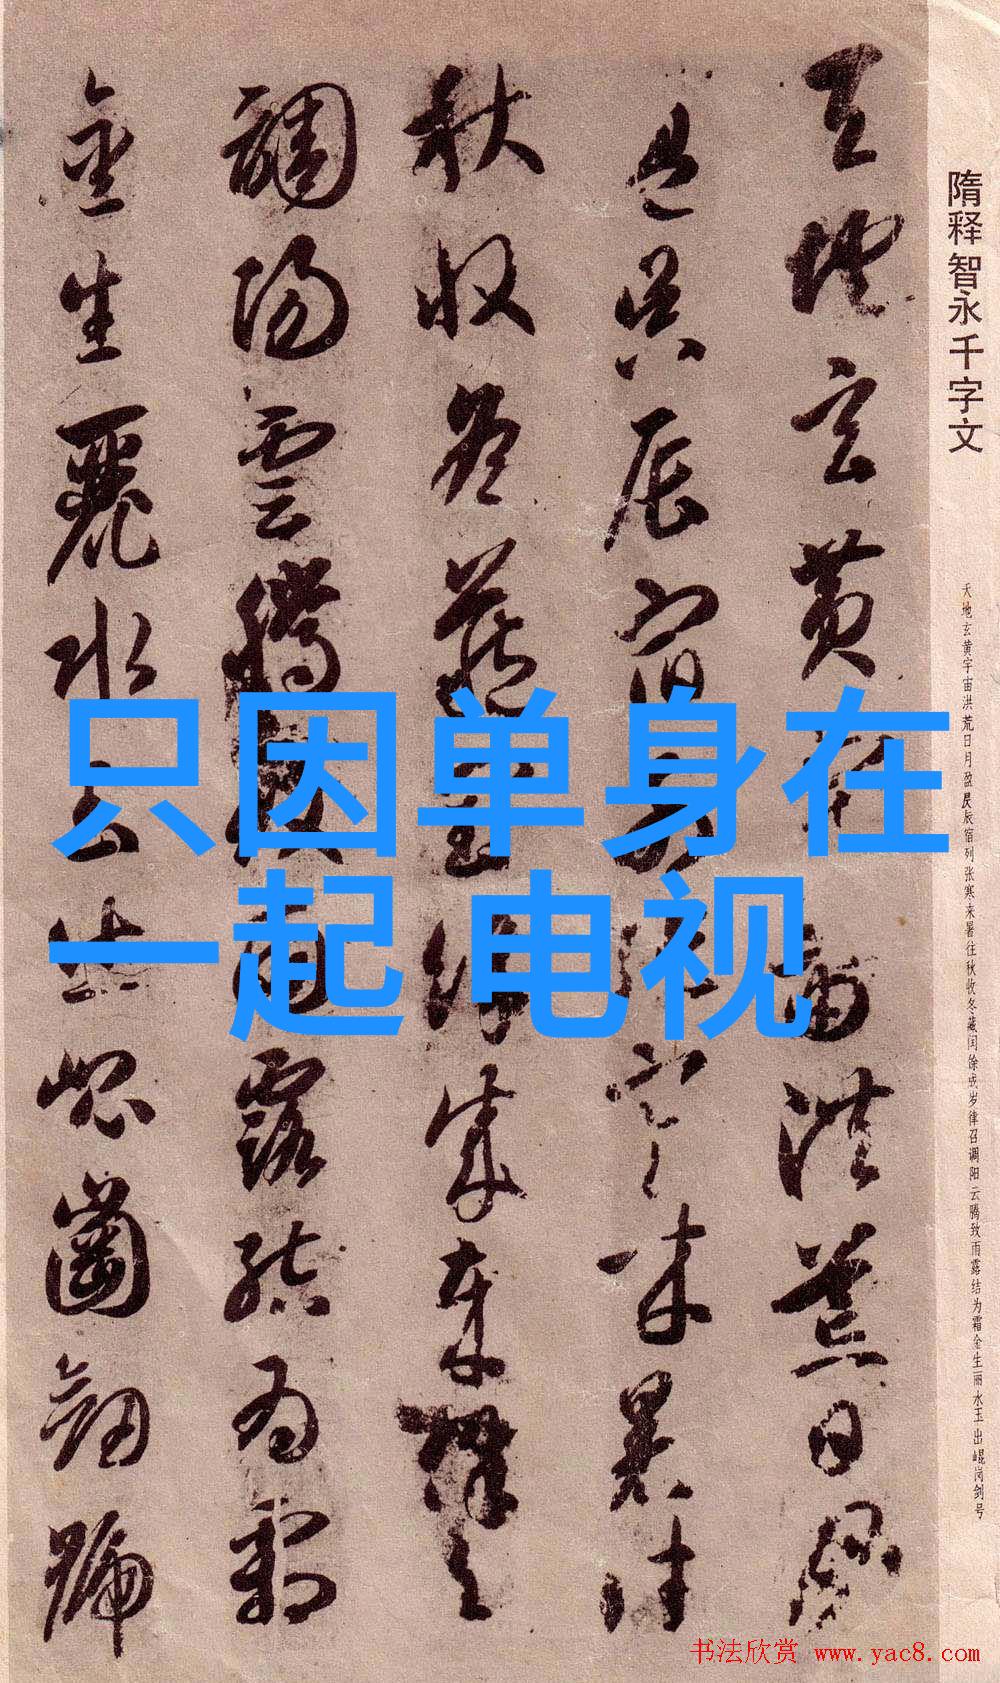 只因单身在
一起 电视
隋释智永千字文
天地玄黄宇宙洪荒日月盈昃辰宿列张寒来暑往秋收冬藏闰馀成岁律召调阳云腾致雨露结为霜金生丽水玉出崐岗剑号
天地玄黄宙洪荒日月
盈昃辰宿列张寒来暑往
秋收冬藏闰餘成歳律召
調陽雲騰致雨露結為霜
金生麗水玉出崐崗劒號
书法欣赏 www.yac8.com